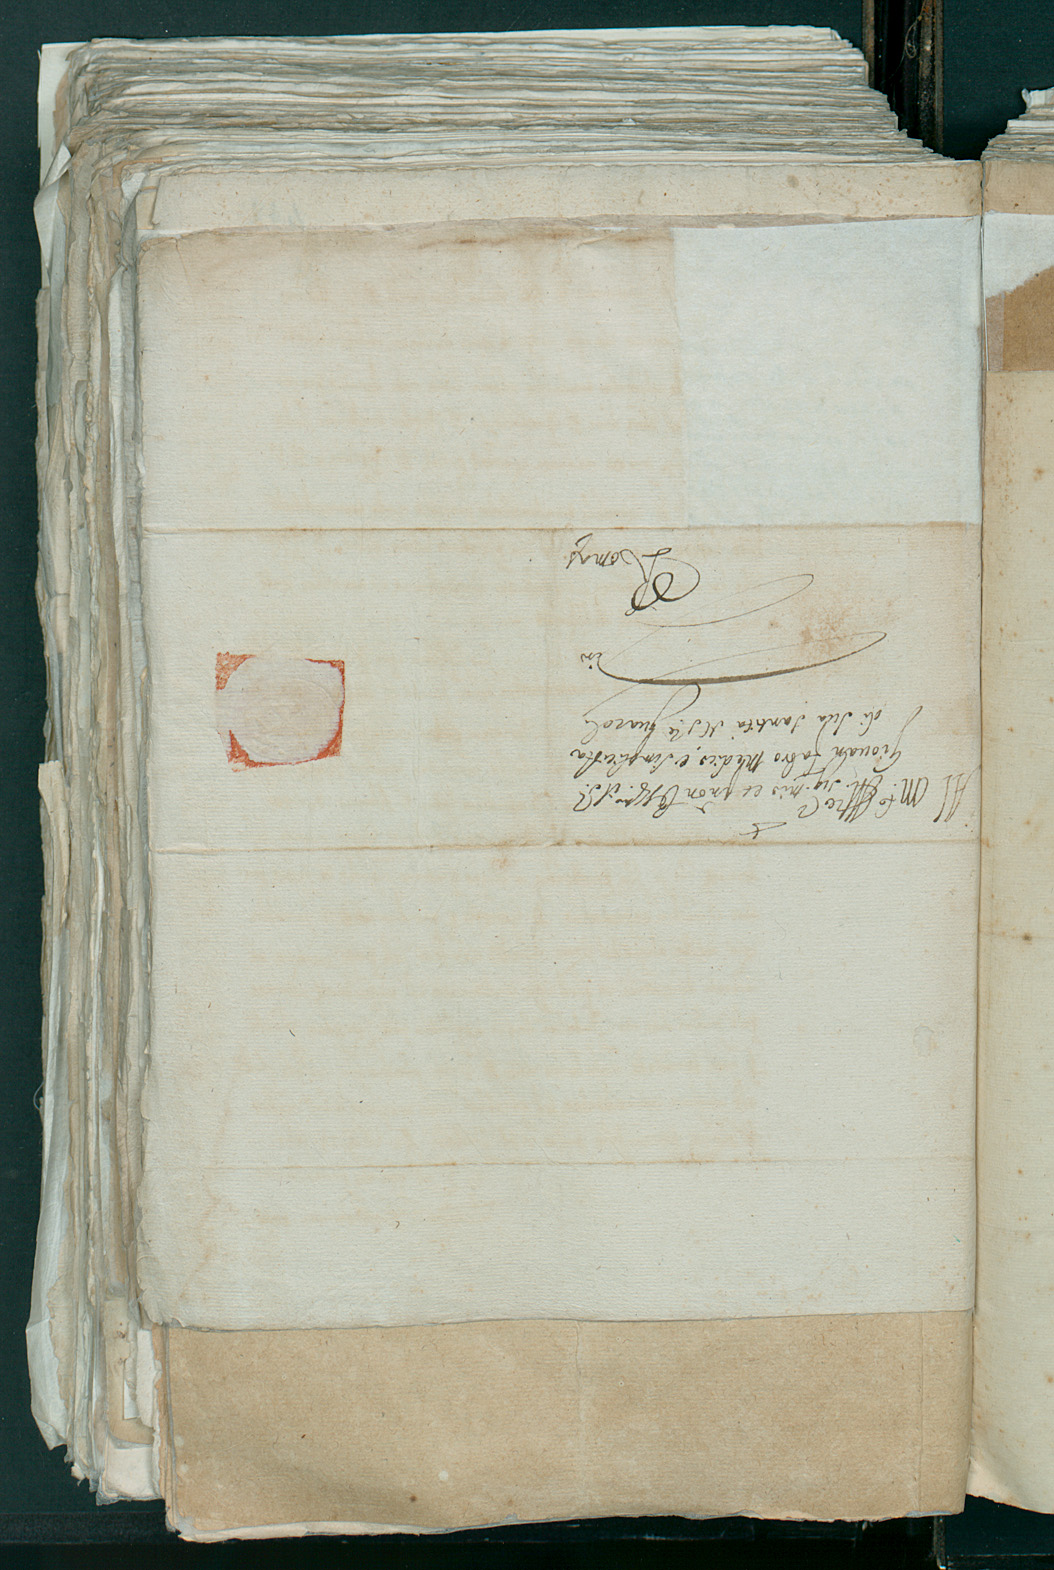 Al M.to Ill.re Sig. mio et pron
Giouan fabro Medico, e Simplicista
di Sua Santità
in
Roma